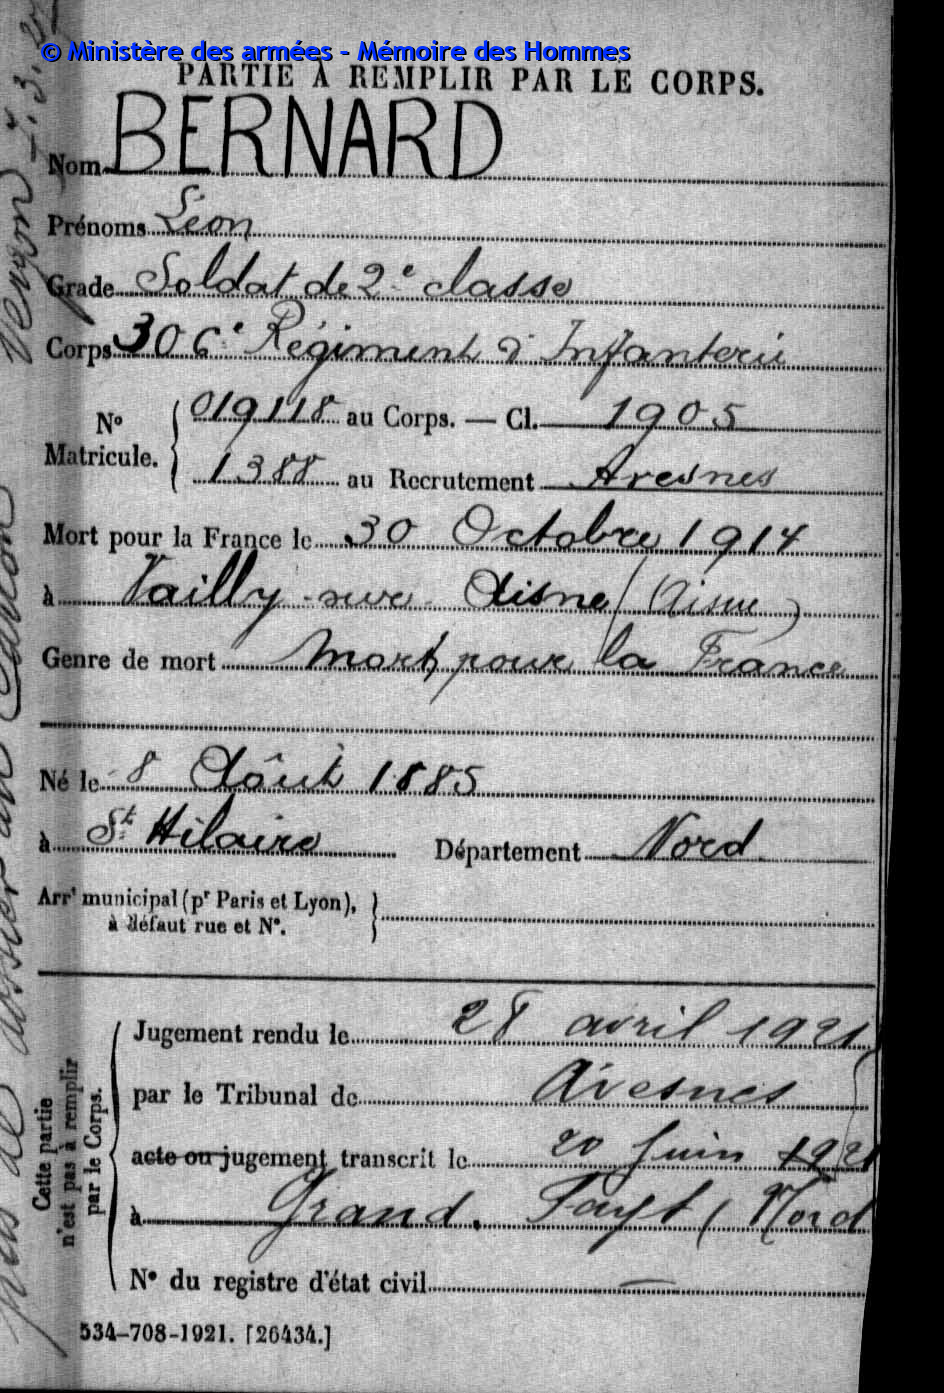 © Ministère des armées - Mémoire des Hommes
PARTIE À REMPLIR PAR LE CORPS.
Nom BERNARD
Prénoms Léon
Grade Soldat de 2e classe
Corps 306e Régiment d'Infanterie
No Matricule. { 019118 au Corps. — Cl. 1905
1388 au Recrutement Avesnes
Mort pour la France le 30 Octobre 1914
à Vailly-sur-Aisne (Aisne)
Genre de mort Mort pour la France
Né le 8 Août 1885
à St Hilaire Département Nord
Arrt municipal (pr Paris et Lyon), }
à défaut rue et No.
Cette partie
n'est pas à remplir
par le Corps.
Jugement rendu le 28 avril 1921
par le Tribunal de Avesnes
acte ou jugement transcrit le 20 Juin 1921
à Grand. Fayt (Nord
No du registre d'état civil —
534-708-1921. [26434.]
pas de dossier au